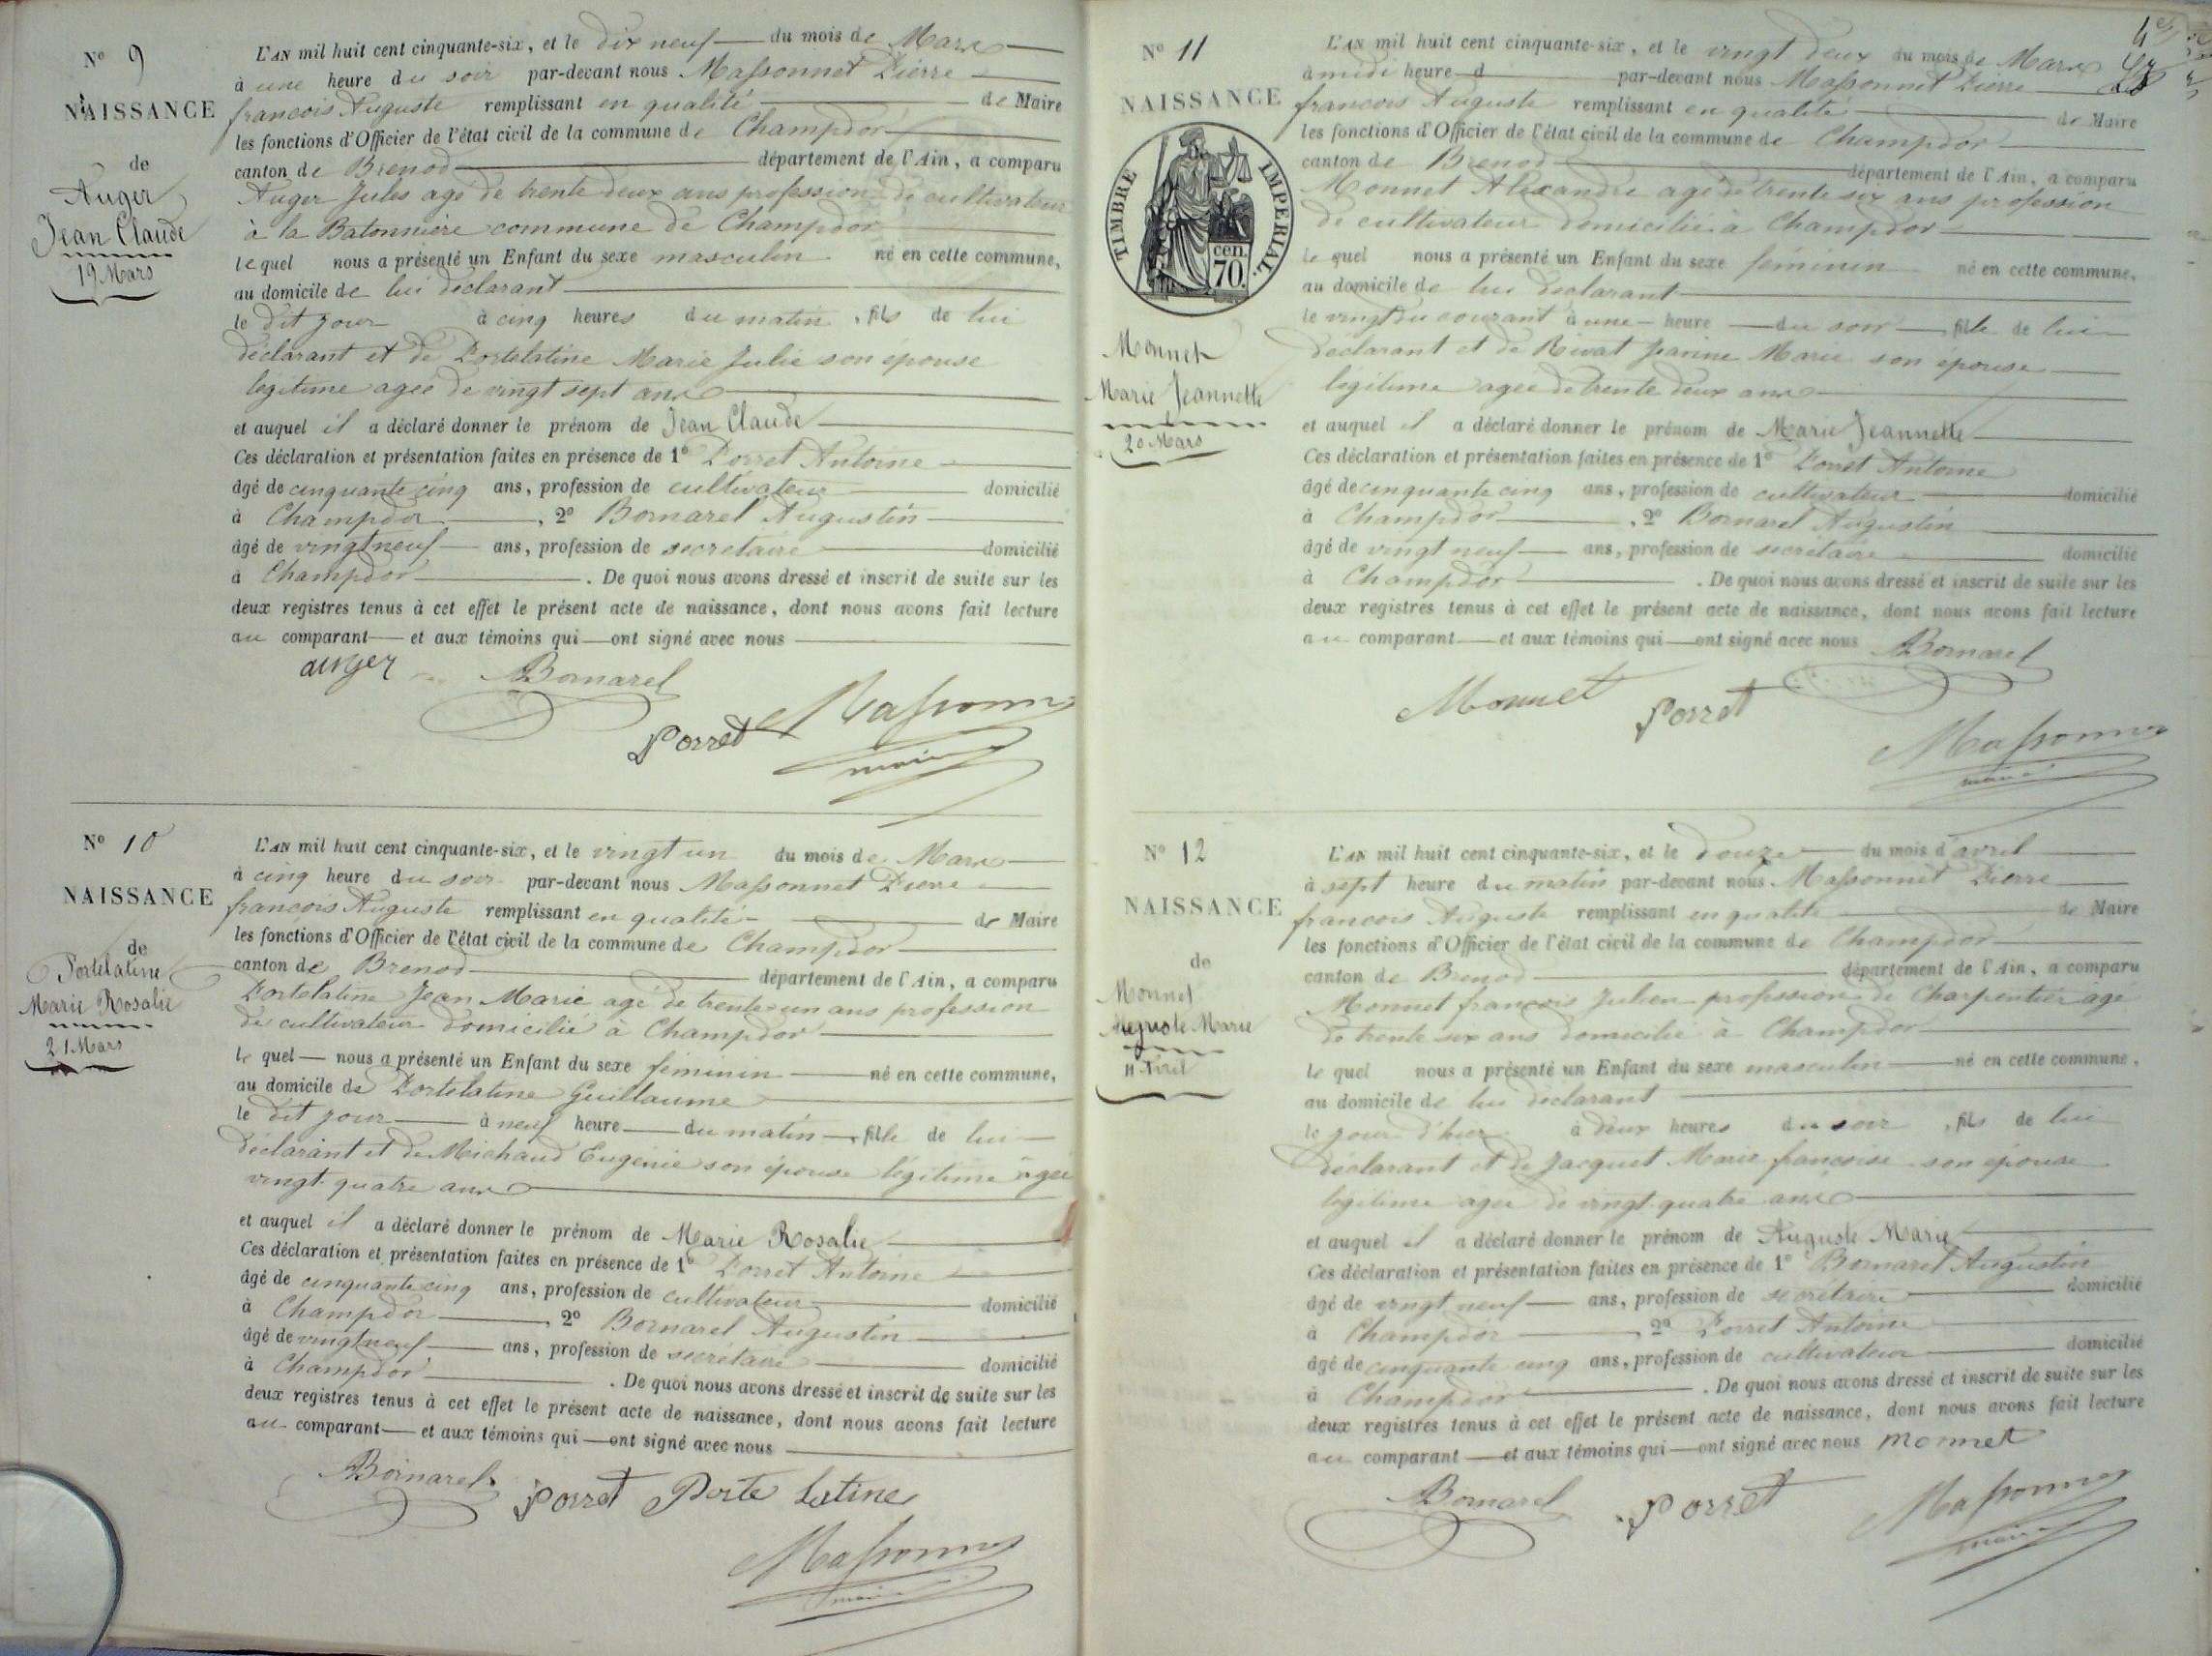 Nº 9
NAISSANCE
de
Auger
Jean Claude
19 Mars
L'AN mil huit cent cinquante-six, et le dix neuf du mois de Mars
à une heure du soir par-devant nous Massonnet Pierre
francois Auguste remplissant en qualité de Maire
les fonctions d'Officier de l'état civil de la commune de Champdor
canton de Brenod département de l'Ain, a comparu
Auger Jules agé de trente deux ans profession de cultivateur
à la Batonnière commune de Champdor
lequel nous a présenté un Enfant du sexe masculin né en cette commune,
au domicile de lui déclarant
le dit jour à cinq heures du matin, fils de lui
déclarant et de Portelatine Marie Julie son épouse
legitime agée de vingt sept ans
et auquel il a déclaré donner le prénom de Jean Claude
Ces déclaration et présentation faites en présence de 1º Porret Antoine
âgé de cinquante cinq ans, profession de cultivateur domicilié
à Champdor, 2º Bornarel Augustin
âgé de vingt neuf ans, profession de secretaire domicilié
à Champdor. De quoi nous avons dressé et inscrit de suite sur les
deux registres tenus à cet effet le présent acte de naissance, dont nous avons fait lecture
au comparant et aux témoins qui ont signé avec nous
auger Bornarel
Porret Massonnet
maire
Nº 10
NAISSANCE
de
Portelatine
Marie Rosalie
21 Mars
L'AN mil huit cent cinquante-six, et le vingt un du mois de Mars
à cinq heure du soir par-devant nous Massonnet Pierre
francois Auguste remplissant en qualité de Maire
les fonctions d'Officier de l'état civil de la commune de Champdor
canton de Brenod département de l'Ain, a comparu
Portelatine Jean Marie agé de trente un ans profession
de cultivateur domicilié à Champdor
le quel nous a présenté un Enfant du sexe féminin né en cette commune,
au domicile de Portelatine Guillaume
le dit jour à neuf heure du matin, fille de lui
déclarant et de Michaud Eugenie son épouse légitime agée
vingt quatre ans
et auquel il a déclaré donner le prénom de Marie Rosalie
Ces déclaration et présentation faites en présence de 1º Porret Antoine
âgé de cinquante cinq ans, profession de cultivateur domicilié
à Champdor, 2º Bornarel Augustin
âgé de vingt neuf ans, profession de secrétaire domicilié
à Champdor. De quoi nous avons dressé et inscrit de suite sur les
deux registres tenus à cet effet le présent acte de naissance, dont nous avons fait lecture
au comparant et aux témoins qui ont signé avec nous
Bornarel Porret Porte latine
Massonnet
maire
Nº 11
NAISSANCE
TIMBRE IMPERIAL.
cen.
70.
Monnet
Marie Jeannette
20 Mars
L'AN mil huit cent cinquante-six, et le vingt deux du mois de Mars
à midi heure d par-devant nous Massonnet Pierre
francois Auguste remplissant en qualité de Maire
les fonctions d'Officier de l'état civil de la commune de Champdor
canton de Brenod département de l'Ain, a comparu
Monnet Alexandre agé de trente six ans profession
de cultivateur domicilié à Champdor
le quel nous a présenté un Enfant du sexe féminin né en cette commune,
au domicile de lui declarant
le vingt du courant à une heure du soir fille de lui
declarant et de Rivat Jeanine Marie son épouse
légitime agée de trente deux ans
et auquel il a déclaré donner le prénom de Marie Jeannette
Ces déclaration et présentation faites en présence de 1º Porret Antoine
âgé de cinquante cinq ans, profession de cultivateur domicilié
à Champdor, 2º Bornarel Augustin
âgé de vingt neuf ans, profession de secrétaire domicilié
à Champdor. De quoi nous avons dressé et inscrit de suite sur les
deux registres tenus à cet effet le présent acte de naissance, dont nous avons fait lecture
au comparant et aux témoins qui ont signé avec nous Bornarel
Monnet Porret
Massonnet
maire
Nº 12
NAISSANCE
de
Monnet
Auguste Marie
11 Avril
L'AN mil huit cent cinquante-six, et le douze du mois d'avril
à sept heure du matin par-devant nous Massonnet Pierre
francois Auguste remplissant en qualité de Maire
les fonctions d'Officier de l'état civil de la commune de Champdor
canton de Brenod département de l'Ain, a comparu
Monnet francois Julien profession de Charpentier agé
de trente six ans domicilié à Champdor
le quel nous a présenté un Enfant du sexe masculin né en cette commune,
au domicile de lui déclarant
le jour d'hier à deux heures du soir, fils de lui
déclarant et de Jacquet Marie francoise son épouse
legitime agée de vingt quatre ans
et auquel il a déclaré donner le prénom de Auguste Marie
Ces déclaration et présentation faites en présence de 1º Bornarel Augustin
âgé de vingt neuf ans, profession de secrétaire domicilié
à Champdor 2º Porret Antoine
âgé de cinquante cinq ans, profession de cultivateur domicilié
à Champdor. De quoi nous avons dressé et inscrit de suite sur les
deux registres tenus à cet effet le présent acte de naissance, dont nous avons fait lecture
au comparant et aux témoins qui ont signé avec nous monnet
Bornarel Porret Massonnet
maire